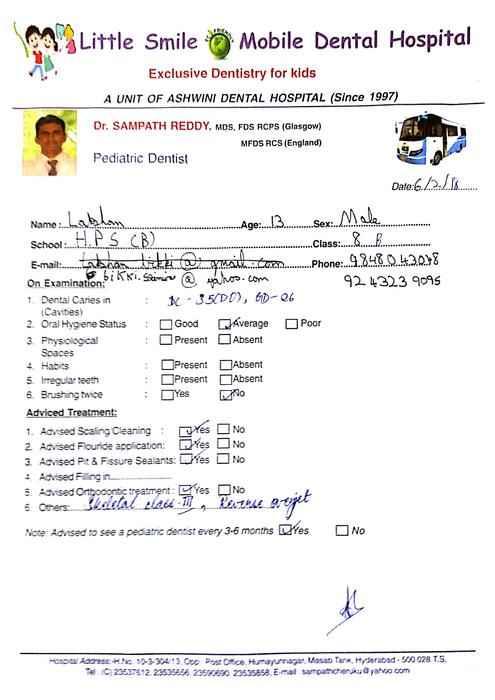 Little Smile Mobile Dental Hospital
Exclusive Dentistry for kids
A UNIT OF ASHWINI DENTAL HOSPITAL (Since 1997)
Dr. SAMPATH REDDY, MDS, FDS RCPS (Glasgow)
MFDS RCS (England)
Pediatric Dentist
Date: 6/2/18
Name: Lakshan Age: 13 Sex: Male
School: H.P.S (B) Class: 8 B
E-mail: @ gmail.com Phone: 9848043048
@ yahoo.com 92 4323 9095
On Examination:
1. Dental Caries in : DC - 35(DO), GD-26
(Cavities)
2. Oral Hygiene Status : Good Average Poor
3. Physiological : Present Absent
Spaces
4. Habits : Present Absent
5. Irregular teeth : Present Absent
6. Brushing twice : Yes No
Adviced Treatment:
1. Advised Scaling/Cleaning : Yes No
2. Advised Flouride application: Yes No
3. Advised Pit & Fissure Sealants: Yes No
4. Advised Filling in
5. Advised Orthodontic treatment : Yes No
6. Others: Skeletal class-III, Reverse overjet
Note: Advised to see a pediatric dentist every 3-6 months Yes No
Hospital Address:-H.No. 10-3-304/13, Opp. Post Office, Humayunnagar, Masab Tank, Hyderabad - 500 028 T.S.
Tel.:(C) 23537612, 23535656, 23590690, 23535858, E-mail : sampathcheruku@yahoo.com